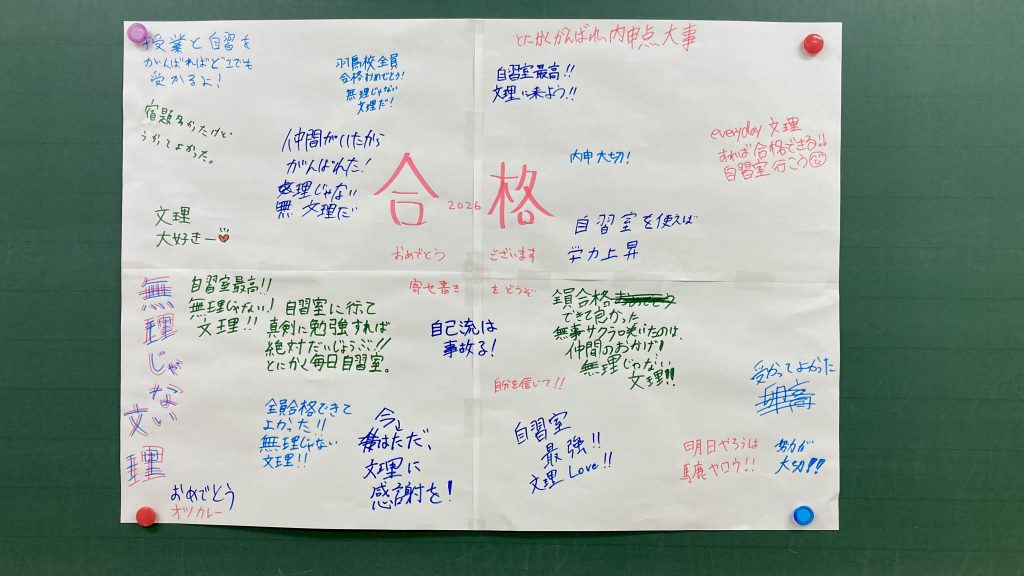 授業と自習を
がんばればどこでも
受かるよ!
羽島校全員
合格おめでとう!
無理じゃない
文理だ!
とにかくがんばれ、内申点大事
自習室最高!!
文理に来よう!!
宿題多かったけど
うかってよかった。
仲間がいたから
がんばれた!
無理じゃない
文理だ
内申大切!
everyday 文理
すれば合格できる!!
自習室行こう
合格
2026
おめでとう ございます
文理
大好きー
自習室を使えば
学力上昇
寄せ書き をどうぞ
無理じゃない
文理
自習室最高!!
無理じゃない!
文理!!
自習室に行て
真剣に勉強すれば
絶対だいじょうぶ!!
とにかく毎日自習室。
自己流は
事故る!
全員合格
できて良かった
無事サクラ咲いたのは、
仲間のおかげ!
無理じゃない
文理!!
自分を信じて!!
受かってよかった
全員合格できて
よかった!!
無理じゃない
文理!!
今は
ただただ、
文理に
感謝を!
自習室
最強!!
文理Love!!
明日やろうは
馬鹿ヤロウ!!
努力が
大切!!
おめでとう
オツカレー